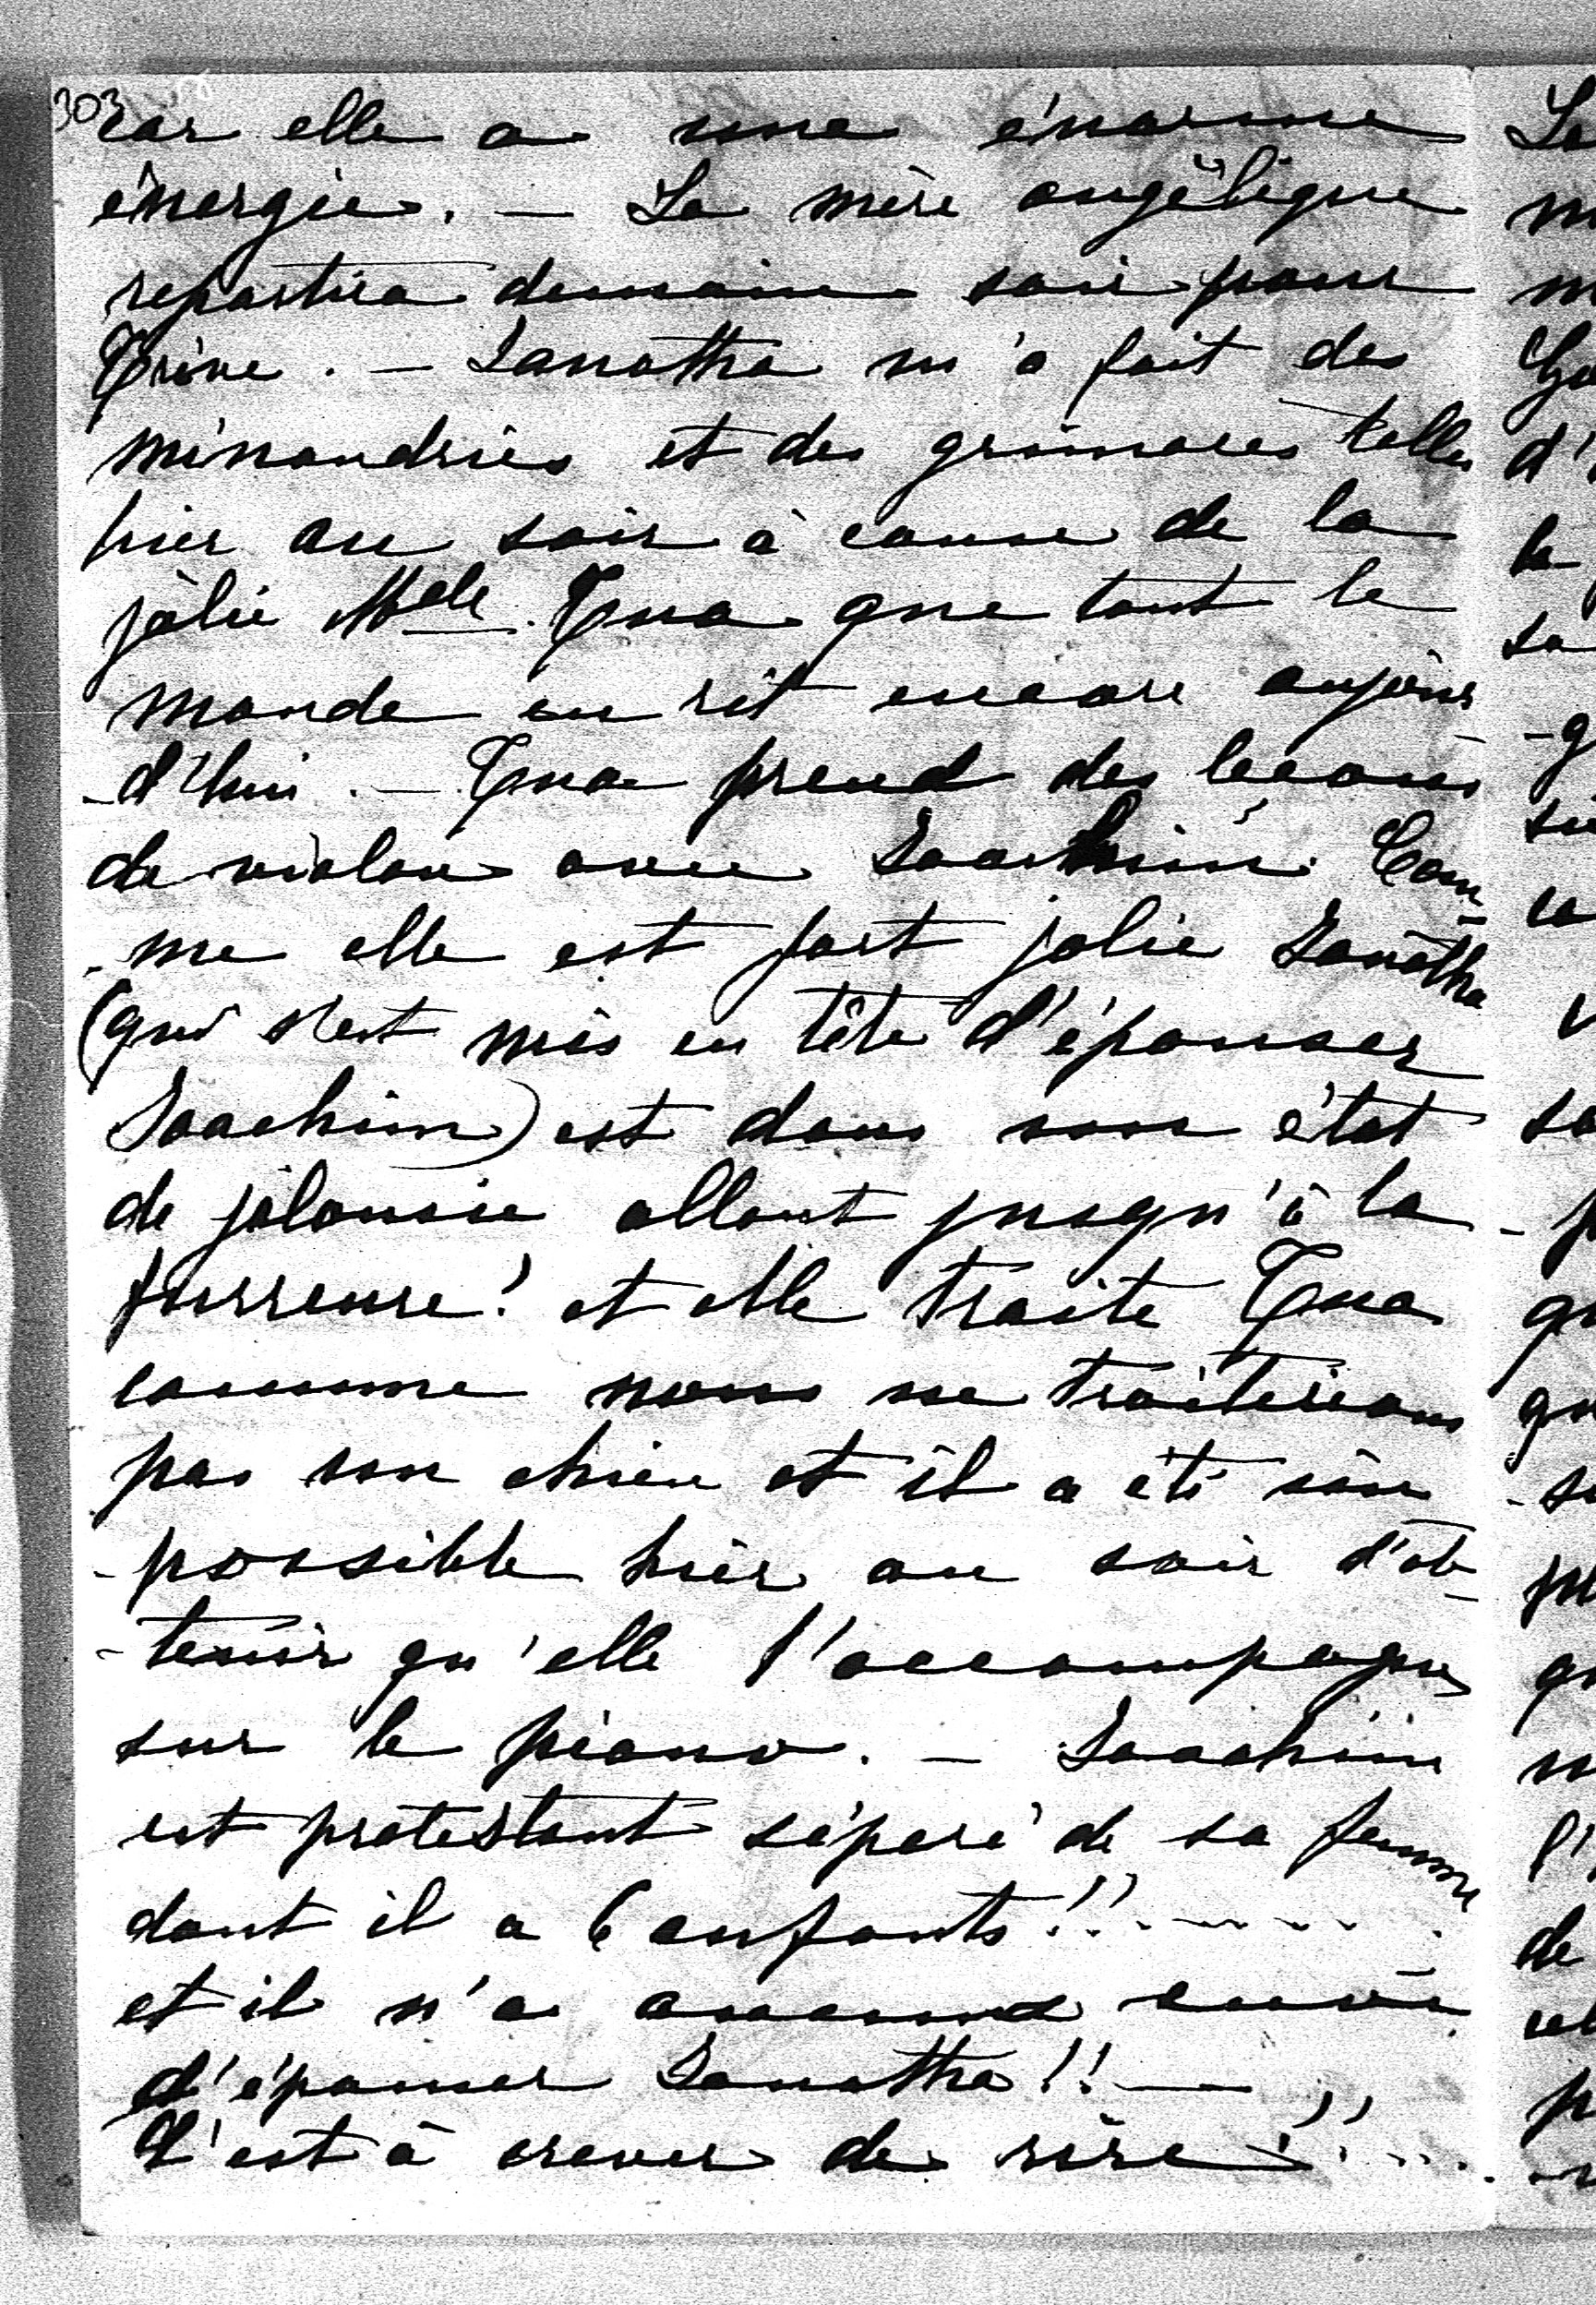 303
car elle a une énorme
énergie. — La mère angélique
repartira demain soir pour
Trine. — Janotha m'a fait des
minaudries et des grimaces telles
hier au soir à cause de la
jolie Mlle Tua que tout le
monde en rit encore aujour
-d'hui. — Tua prend des lecons
de violon avec Joachim. Com-
-me elle est fort jolie Janotha
(qui s'est mis en tête d'épouser
Joachim) est dans un état
de jalousie allant jusqu'à la
furreure! et elle traite Tua
comme nous ne traiterions
pas un chien et il a été im
-possible hier au soir d'ob-
-tenir qu'elle l'accompagne
sur le piano. — Joachim
est protestant séparé de sa femme
dont il a 6 enfants!!.......
et il n'a aucune envie
d'épouser Janotha!! —
C'est à crever de rire!!....